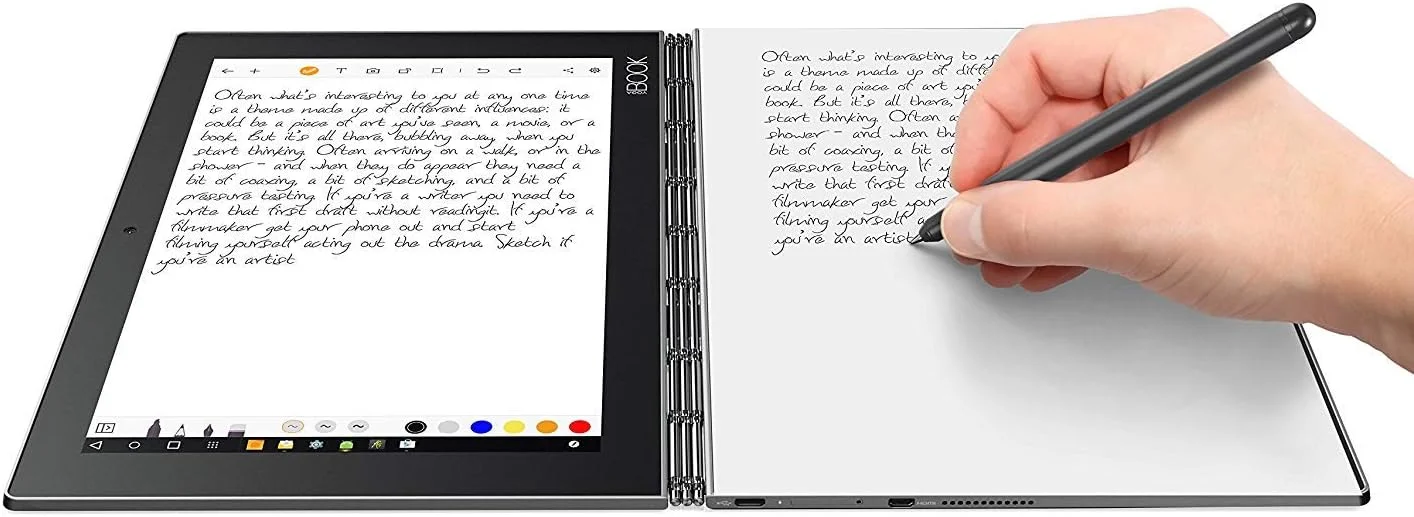 YOGA BOOK
Often what's interesting to you at any one time
is a theme made up of different influences: it
could be a piece of art you've seen, a movie, or a
book. But it's all there, bubbling away, when you
start thinking. Often arriving on a walk, or in the
shower – and when they do appear they need a
bit of coaxing, a bit of sketching, and a bit of
pressure testing. If you're a writer you need to
write that first draft without readingit. If you're a
filmmaker get your phone out and start
filming yourself acting out the drama. Sketch if
you're an artist
Often what's interesting to
is a theme made up of
could be a piece of art
book. But it's all there,
start thinking. Often
shower – and when
bit of coaxing, a bit of
pressure testing. If
write that first draft
filmmaker get your
filming yourself
you're an artist
HDMI